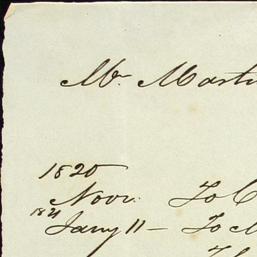 Mr Mart
1820
Novr. To C
1821
Jany 11 — To M